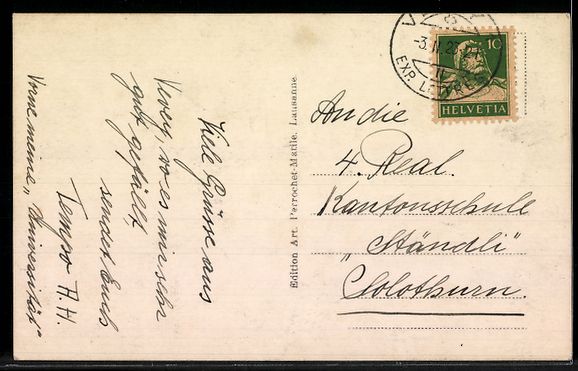 Viele Grüsse aus
Vevey, wo es mir sehr
gut gefällt,
sendet Euch
Tempo A. H.
Vorne meine „Universität“
Edition Art. Perrochet-Matile, Lausanne
10
HELVETIA
EXP. LETTRES
An die
4. Real.
Kantonsschule
„Ständli“
Solothurn.